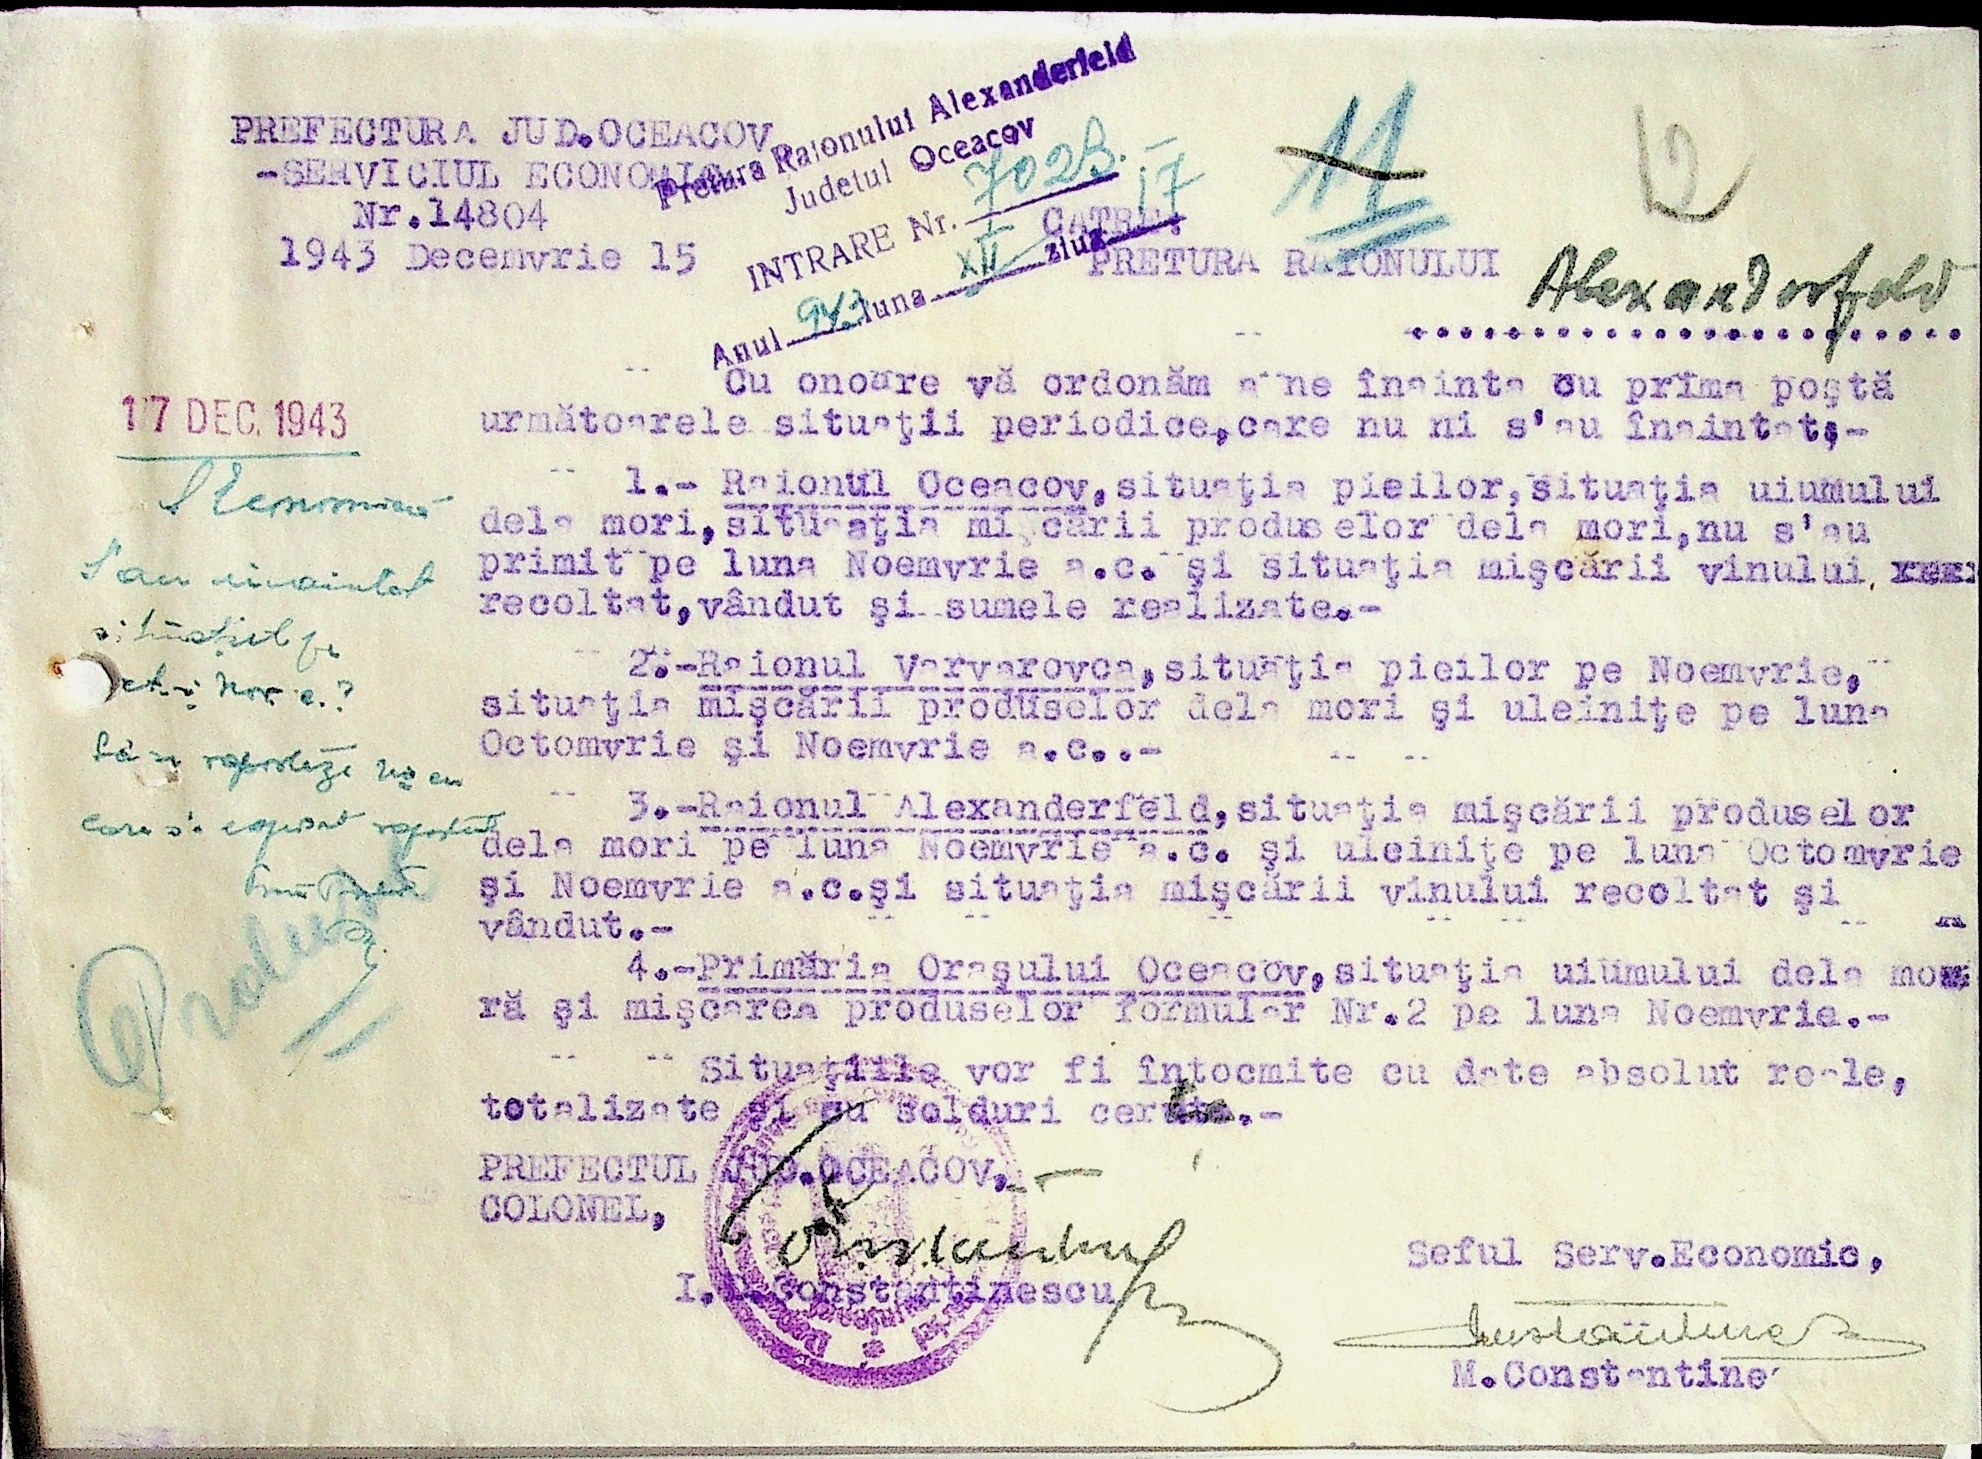 PREFECTURA JUD.OCEACOV
-SERVICIUL ECONOMIC-
Nr.14804
1943 Decemvrie 15
Pretura Raionului Alexanderfeld
Judetul Oceacov
INTRARE Nr. 7023.
Anul 943 luna XII ziua 17
11
12
CATRE,
PRETURA RAIONULUI Alexanderfeld
17 DEC. 1943
Cu onoare vă ordonăm a ne înainta cu prima poştă
următoarele situaţii periodice,care nu ni s'au înaintat;-
1.- Raionul Oceacov,situaţia pieilor,situaţia uiumului
dela mori,situaţia mişcării produselor dela mori,nu s'au
primit pe luna Noemvrie a.c. şi situaţia mişcării vinului
recoltat,vândut şi sumele realizate.-
2.-Raionul Varvarovca,situaţia pieilor pe Noemvrie,
situaţia mişcării produselor dela mori şi uleiniţe pe luna
Octomvrie şi Noemvrie a.c..-
3.-Raionul Alexanderfeld,situaţia mişcării produselor
dela mori pe luna Noemvrie a.c. şi uleiniţe pe luna Octomvrie
şi Noemvrie a.c.şi situaţia mişcării vinului recoltat şi
vândut.-
4.-Primăria Oraşului Oceacov,situaţia uiumului dela moa
ră şi mişcarea produselor formular Nr.2 pe luna Noemvrie.-
Situaţiile vor fi întocmite cu date absolut reale,
totalizate şi cu solduri certe.-
S'au inaintat
situațiile pe
Oct. și Nov. a.c.?
Să se raporteze No. cu
care s'a expediat raportul
PREFECTUL JUD.OCEACOV,
COLONEL,
I. Constantinescu
Seful Serv.Economic,
M.Constantine